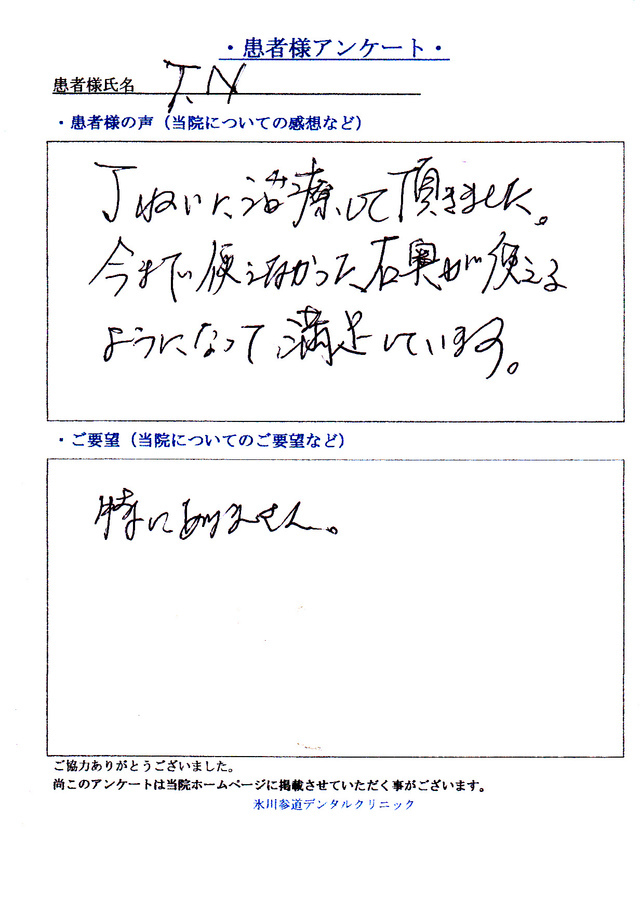 ・患者様アンケート・
患者様氏名 T.N
・患者様の声（当院についての感想など）
丁ねいに治療して頂きました。
今まで使えなかった右奥が使える
ようになって満足しています。
・ご要望（当院についてのご要望など）
特にありません。
ご協力ありがとうございました。
尚このアンケートは当院ホームページに掲載させていただく事がございます。
氷川参道デンタルクリニック